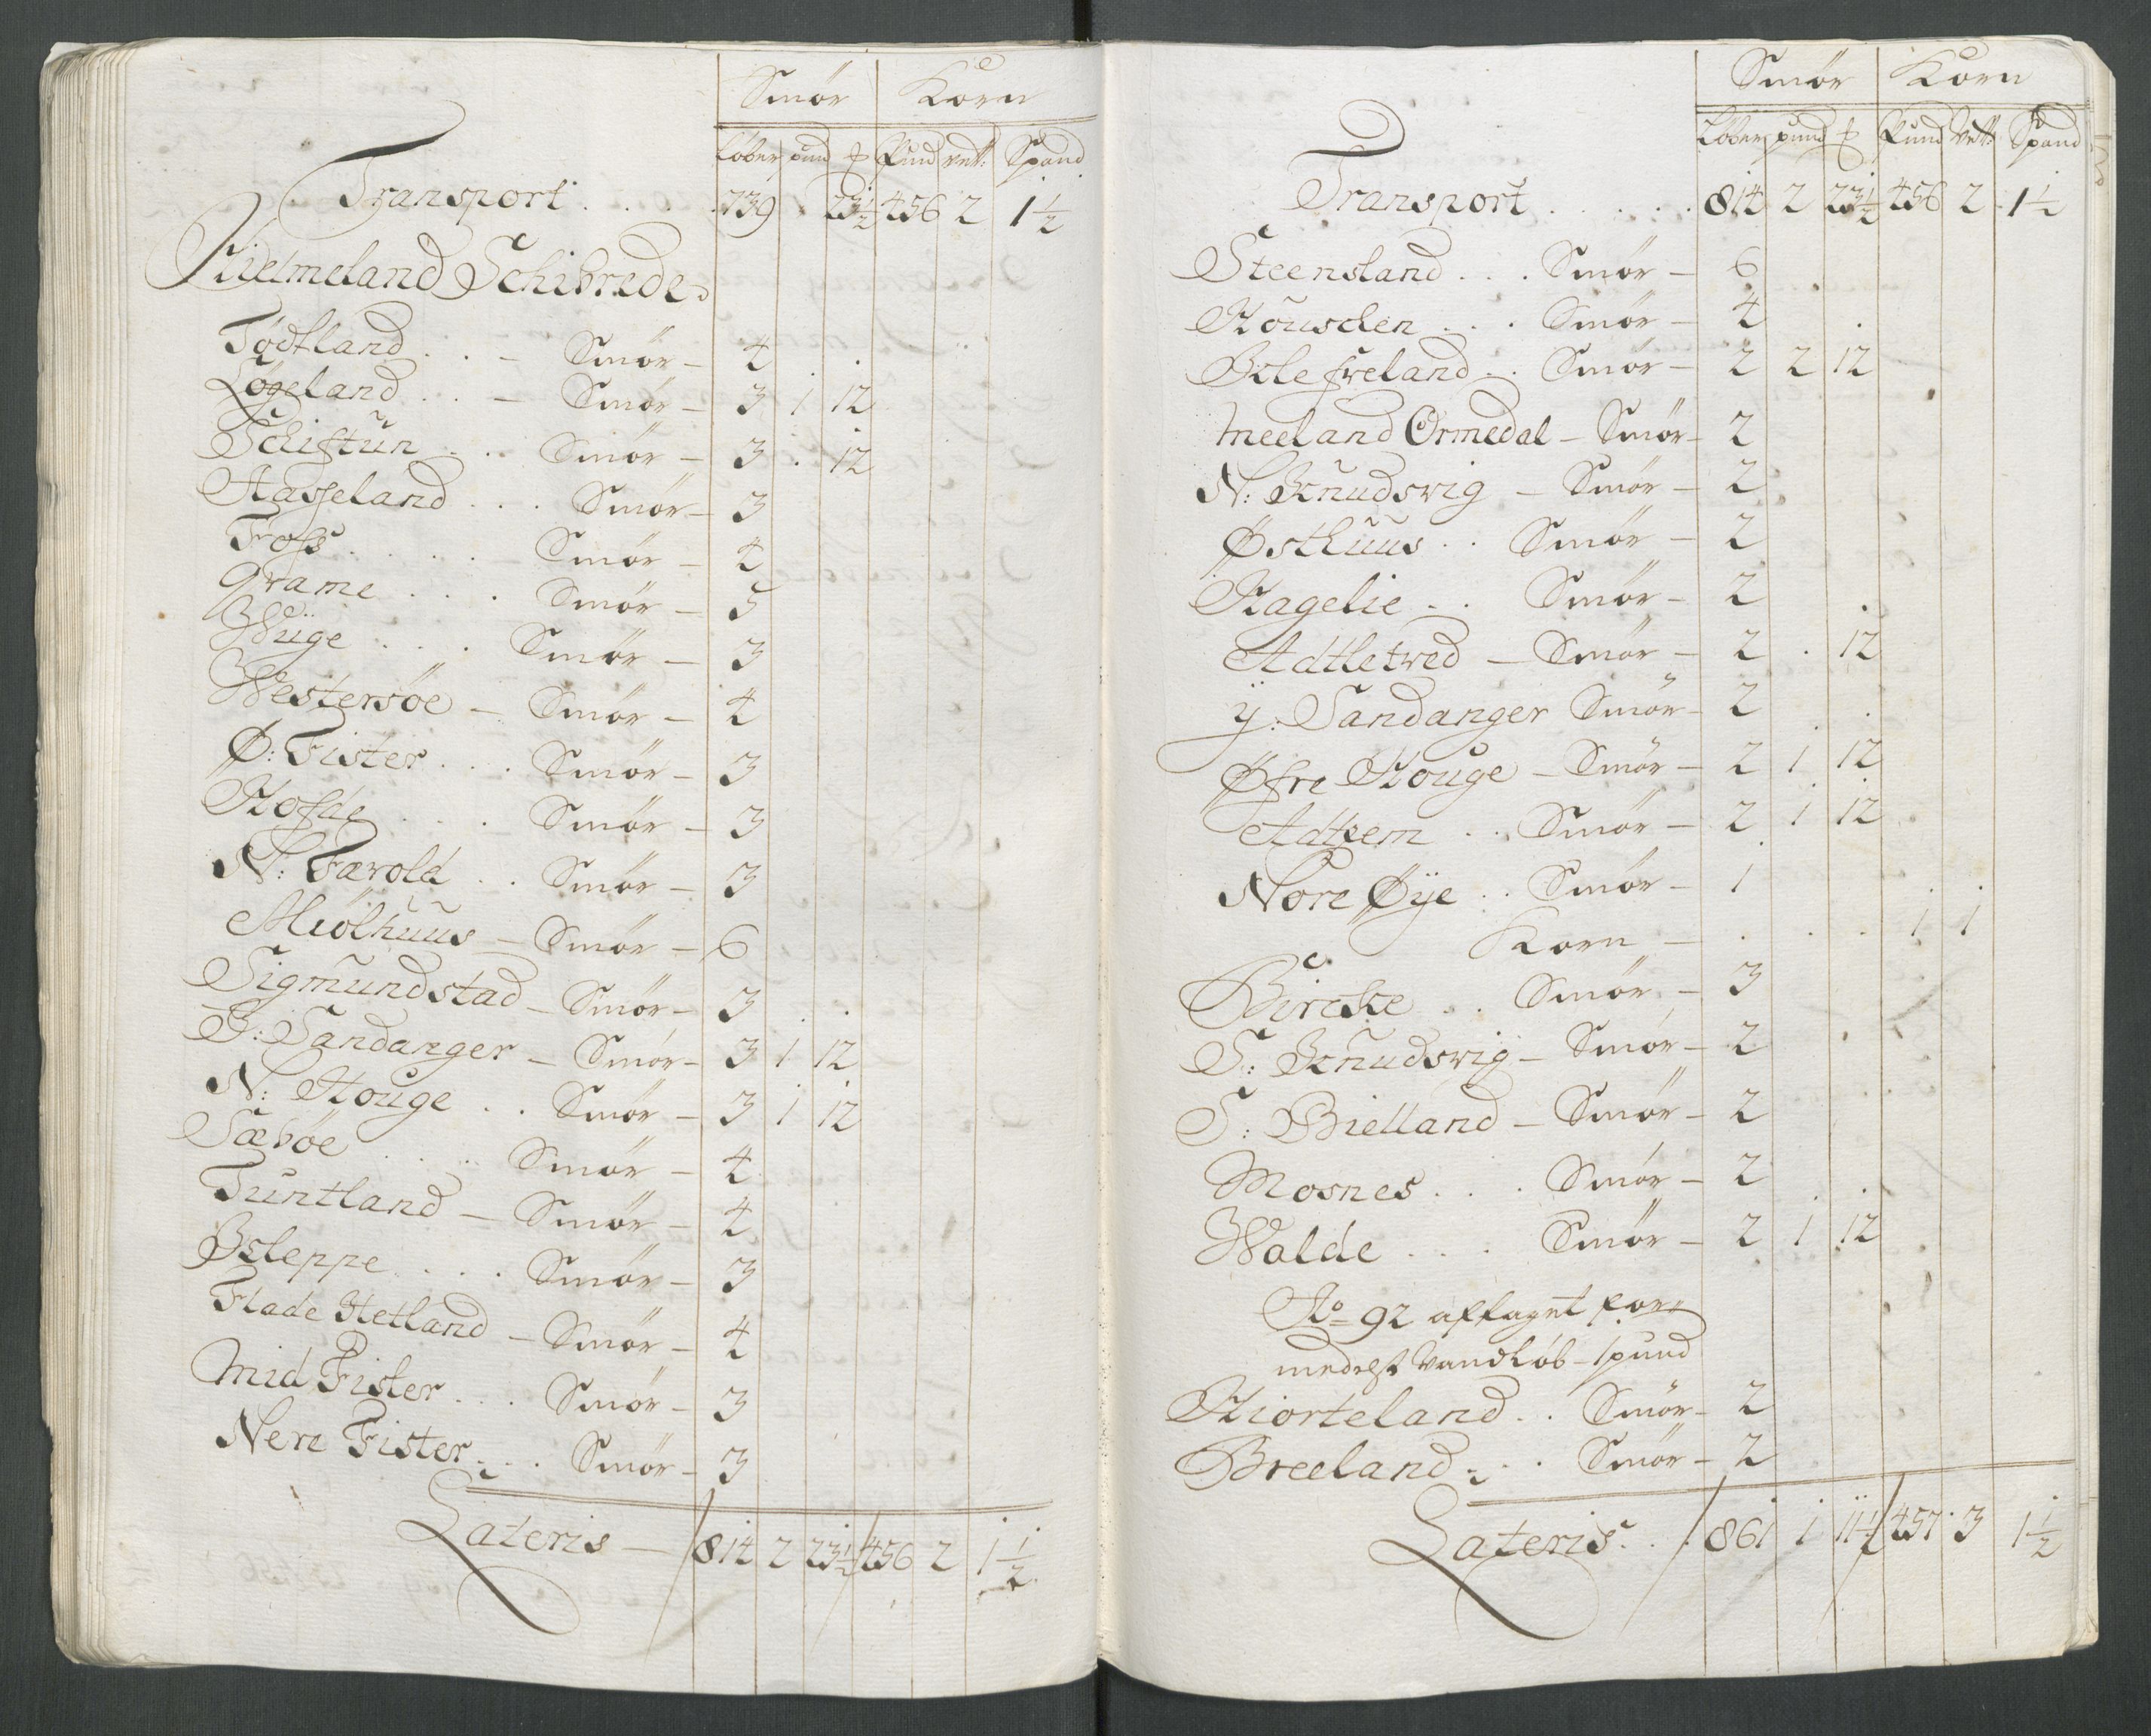 Smör Korn
Løber pund ℔ Pund vett: Spand
Transport . . . . 739 . 23½ 456 2 1½
Hielmeland Schibrede
Tödtland . . — Smör — 4 . .
Løgeland . . — Smör — 3 1 12
Schiftun . . Smör — 3 . 12
Hasseland . . . Smör — 3
Foss . . . . — Smör — 4
Grame . . . Smör — 5
Wüge . . . Smör — 3
Westersöe — Smör — 4
Ø: Fister . . . Smör — 3
Hofde . . . Smör — 3
N: Færold . . Smör — 3
Miölhuus — Smör — 6
Sigmundstad — Smör — 3 . .
I: Sandanger — Smör — 3 1 12
N: Houge . . Smör — 3 1 12
Sæböe . . . Smör — 4
Tuntland — Smör — 4
Bsleppe . . . Smör — 3
Flade Hetland — Smör — 4
Mid Fister . . . Smör — 3
Nere Fister . . . Smör — 3
Lateris — 814 2 23½ 456 2 1½
Smör Korn
Løber pund ℔ Pund Vett: Spand
Transport . . . . . 814 2 23½ 456 2 1½
Steensland . . . Smör — 6 .
Houschen . . . Smör — 4 .
Smör — 2 2 12
Meeland Ormedal — Smör — 2
N: Knudsvig — Smör — 2
Østhuus . . Smör — 2
Hagelie . . Smör — 2
Adtletved — Smör — 2 . 12
ÿ: Sandanger Smör — 2
Øfre Houge — Smör — 2 1 12
Adtsem . . Smör — 2 1 12
Nore Øÿe . . Smör — 1
Korn — . . . 1 1
Bircke . . Smör — 3
S: Knudsvig — Smör — 2
S: Bielland — Smör — 2
Mosnes . . . Smör — 2
Walde . . . Smör — 2 1 12
Ao 92 aftaget for
medelst Vandløb — 1 pund
Hiorteland . . Smör — 2
Breeland . . . Smör — 2
Lateris . . 861 1 11½ 457 3 1½